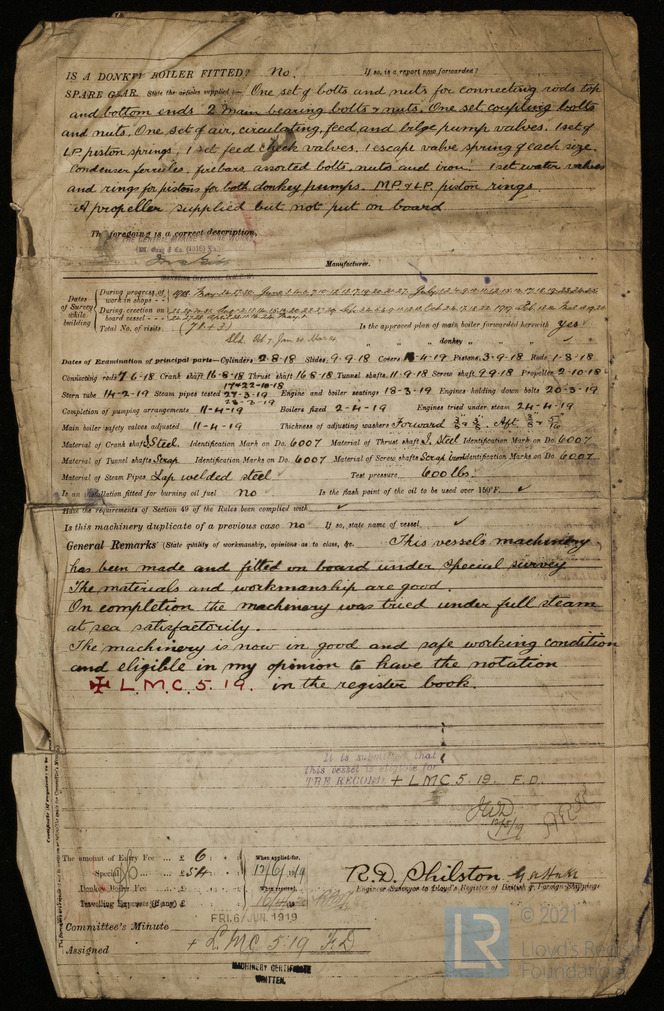 IS A DONKEY BOILER FITTED? No. If so, is a report now forwarded?
SPARE GEAR. State the articles supplied:— One set of bolts and nuts for connecting rods top
and bottom ends 2 Main bearing bolts & nuts. One set coupling bolts
and nuts. One set of air, circulating, feed and bilge pump valves. 1 set of
LP. piston springs. 1 set feed check valves. 1 escape valve spring of each size.
Condenser ferrules, firebars, assorted bolts, nuts and iron. 1 set water valves
and rings for pistons for both donkey pumps. MP & LP. piston rings.
A propeller supplied but not put on board
The foregoing is a correct description,
THE CENTRAL MARINE ENGINE WORKS
Manufacturer.
Dates of Survey while building
During progress of work in shops - -
During erection on board vessel - - -
Total No. of visits (78+3)
Is the approved plan of main boiler forwarded herewith yes
" " " donkey " " "
Dates of Examination of principal parts—Cylinders 2-8-18 Slides 9-9-18 Covers -4-19 Pistons 3-9-18 Rods 1-8-18
Connecting rods 7 6-18 Crank shaft 16-8-18 Thrust shaft 16 8-18 Tunnel shafts 11-9-18 Screw shaft 9-9-18 Propeller 2-10-18
17 & 22-10-18
Stern tube 14-2-19 Steam pipes tested 27-3-19 Engine and boiler seatings 18-3-19 Engines holding down bolts 20-3-19
Completion of pumping arrangements 11-4-19 Boilers fixed 2-4-19 Engines tried under steam 24-4-19
Main boiler safety valves adjusted 11-4-19 Thickness of adjusting washers Forward Aft
Material of Crank shaft S. Steel. Identification Mark on Do. 6007 Material of Thrust shaft S. Steel Identification Mark on Do. 6007
Material of Tunnel shafts Scrap Identification Marks on Do. 6007 Material of Screw shafts Scrap iron Identification Marks on Do. 6007
Material of Steam Pipes Lap welded steel Test pressure 600 lbs.
Is an installation fitted for burning oil fuel no Is the flash point of the oil to be used over 150°F. ✓
Have the requirements of Section 49 of the Rules been complied with ✓
Is this machinery duplicate of a previous case no If so, state name of vessel ✓
General Remarks (State quality of workmanship, opinions as to class, &c. This vessel's machinery
has been made and fitted on board under special survey
The materials and workmanship are good.
On completion the machinery was tried under full steam
at sea satisfactorily.
The machinery is now in good and safe working condition
and eligible in my opinion to have the notation
✠ L.M.C. 5. 19. in the register book.
It is submitted that
this vessel is eligible for
THE RECORD + LMC 5. 19. F.D.
The amount of Entry Fee .. £ 6 When applied for,
Special £ 54 12/6/1919
Donkey Boiler Fee £ When received,
Travelling Expenses (if any) £
R.D. Shilston
Engineer Surveyor to Lloyd's Register of British & Foreign Shipping.
Committee's Minute FRI. 6 JUN. 1919
Assigned + LMC 5.19 FD
MACHINERY CERTIFICATE
WRITTEN.
LR © 2021
Lloyd's Register
Foundation